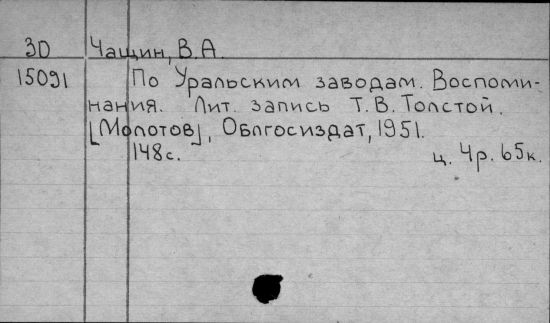 3D Чащин, В.А.
15091 По Уральским заводам. Воспоми-
нания. Лит. запись Т.В. Толстой.
[Молотов], Облгосиздат, 1951.
148с. ц. 4р. 65к.